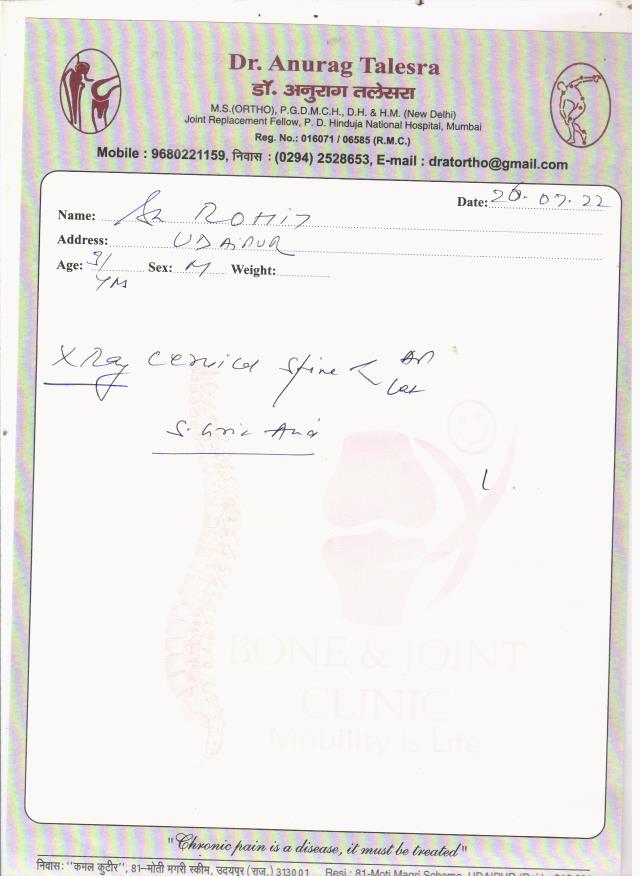 Dr. Anurag Talesra
डॉ. अनुराग तलेसरा
M.S.(ORTHO), P.G.D.M.C.H., D.H. & H.M. (New Delhi)
Joint Replacement Fellow, P. D. Hinduja National Hospital, Mumbai
Reg. No.: 016071 / 06585 (R.M.C.)
Mobile : 9680221159, निवास : (0294) 2528653, E-mail : dratortho@gmail.com
Date: 26.07.22
Name: Sh ROHIT
Address: UDAIPUR
Age: Sex: M Weight:
X Ray cervical spine < AP
Lat
S. Uric Acid
BONE & JOINT
CLINIC
Mobility is Life
"Chronic pain is a disease, it must be treated"
निवास: "कमल कुटीर", 81-मोती मगरी स्कीम, उदयपुर (राज.) 313001 Resi : 81-Moti Magri Scheme, UDAIPUR